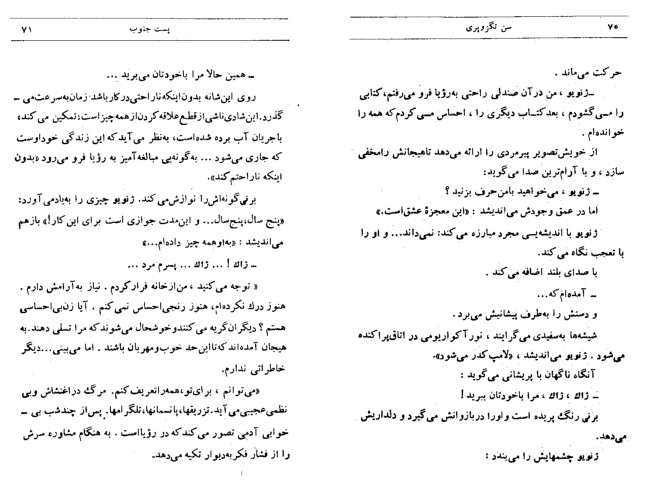 ۷۰
سن تگزوپری
حرکت می‌ماند .
ــ ژنویو ، من درآن صندلی راحتی به‌رؤیا فرو می‌رفتم، کتابی
را مــی‌گشودم ، بعدکتاب دیگری را ، احساس مــی کردم‌که همه را
خوانده‌ام .
از خویش‌تصویر پیرمردی را ارائه می‌دهد تاهیجانش رامخفی
سازد ، و با آرام‌ترین صدا می‌گوید:
ــ ژنویو ، می‌خواهید بامن‌حرف بزنید ؟
اما در عمق وجودش می‌اندیشد : «این معجزهٔ عشق‌است.»
ژنویو با اندیشه‌یــی مجرد مبارزه می‌کند: نمی‌داند... و او را
با تعجب نگاه می‌کند.
با صدای بلند اضافه می‌کند .
ــ آمده‌ام‌که...
و دستش را به‌طرف پیشانیش می‌برد .
شیشه‌ها به‌سفیدی می‌گرایند ، نور‌آکواریومی در اتاق‌پراکنده
می‌شود . ژنویو می‌اندیشد ، «لامپ‌کدر می‌شود».
آنگاه ناگهان با پریشانی می‌گوید :
ــ ژاك ، ژاك ، مرا باخودتان ببرید !
برنی رنگــ پریده است‌و‌اورا در‌بازوانش می‌گیرد و دلداریش
می‌دهد.
ژنویو چشمهایش را می‌بندد :
پست جنوب
۷۱
ــ همین حالا مرا باخودتان می‌برید ...
روی این‌شانه بدون‌اینکه ناراحتی درکار‌باشد زمان‌به‌سرعت‌می ــ
گذرد. این‌شادی‌ناشی ازقطع‌علاقه‌کردن‌ازهمه‌چیز‌است: تمکین می‌کند،
باجریان آب برده شده‌است، به‌نظر می‌آید‌که این زندگی خود‌اوست
که جاری می‌شود ... به‌گونه‌یی مبالغه‌آمیز به رؤیا فرو می‌رود «بدون
اینکه ناراحتم‌کند».
برنی‌گونه‌اش‌را نوازش‌می‌کند. ژنویو چیزی را به‌یادمی‌آورد:
«پنج سال، پنج‌سال... و این‌مدت جوازی است برای این‌کار!» بازهم
می‌اندیشد : «به‌اوهمه چیز داده‌ام...»
ــ ژاك ! ... ژاك ... پسرم مرد ...
« توجه می‌کنید ، من‌ازخانه فرارکردم . نیاز به‌آرامش دارم .
هنوز درك نکرده‌ام، هنوز رنجی‌احساس نمی‌کنم . آیا زن‌بی‌احساسی
هستم ؟ دیگران‌گریه می‌کنندوخوشحال می‌شوند‌که مرا تسلی دهند. به
هیجان آمده‌اند‌که تااین‌حد خوب و‌مهربان باشند . اما می‌بینی...دیگر
خاطراتی ندارم.
«می‌توانم ، برای‌تو، همه‌راتعریف‌کنم. مرگ دراغتشاش وبی
نظمی‌عجیبی‌می‌آید. تزریقها، پانسمانها، تلگرامها. پس‌از چندشب بی ــ
خوابی آدمی تصور می‌کند‌که در رؤیااست . به هنگام مشاوره سرش
را از فشار فکر‌به‌دیوار تکیه می‌دهد.